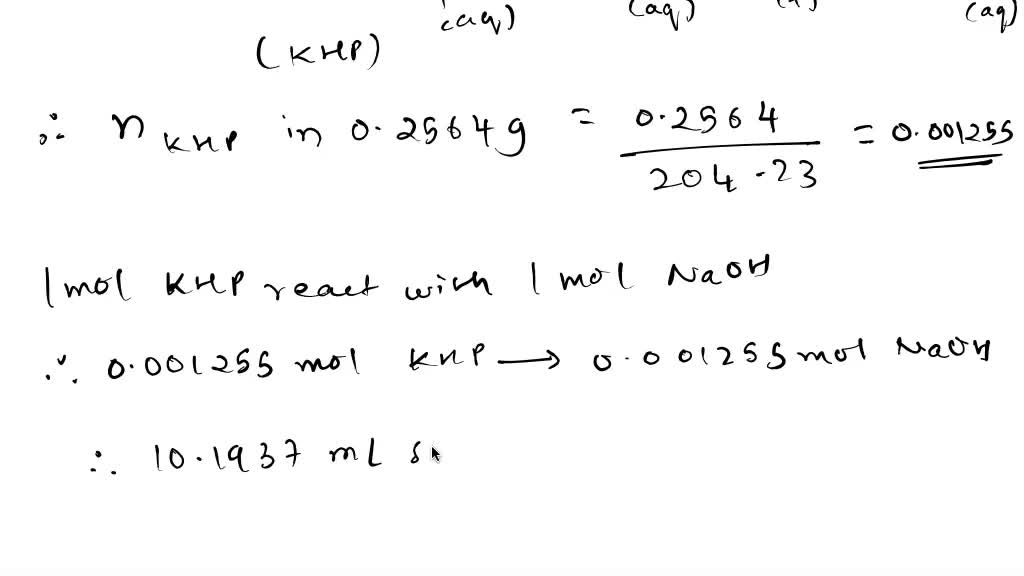 (aq) (aq) (aq)
(KHP)
∴ n KHP in 0.2564g = 0.2564 / 204.23 = 0.001255
1 mol KHP react with 1 mol NaOH
∴ 0.001255 mol KHP → 0.001255 mol NaOH
∴ 10.1937 mL s